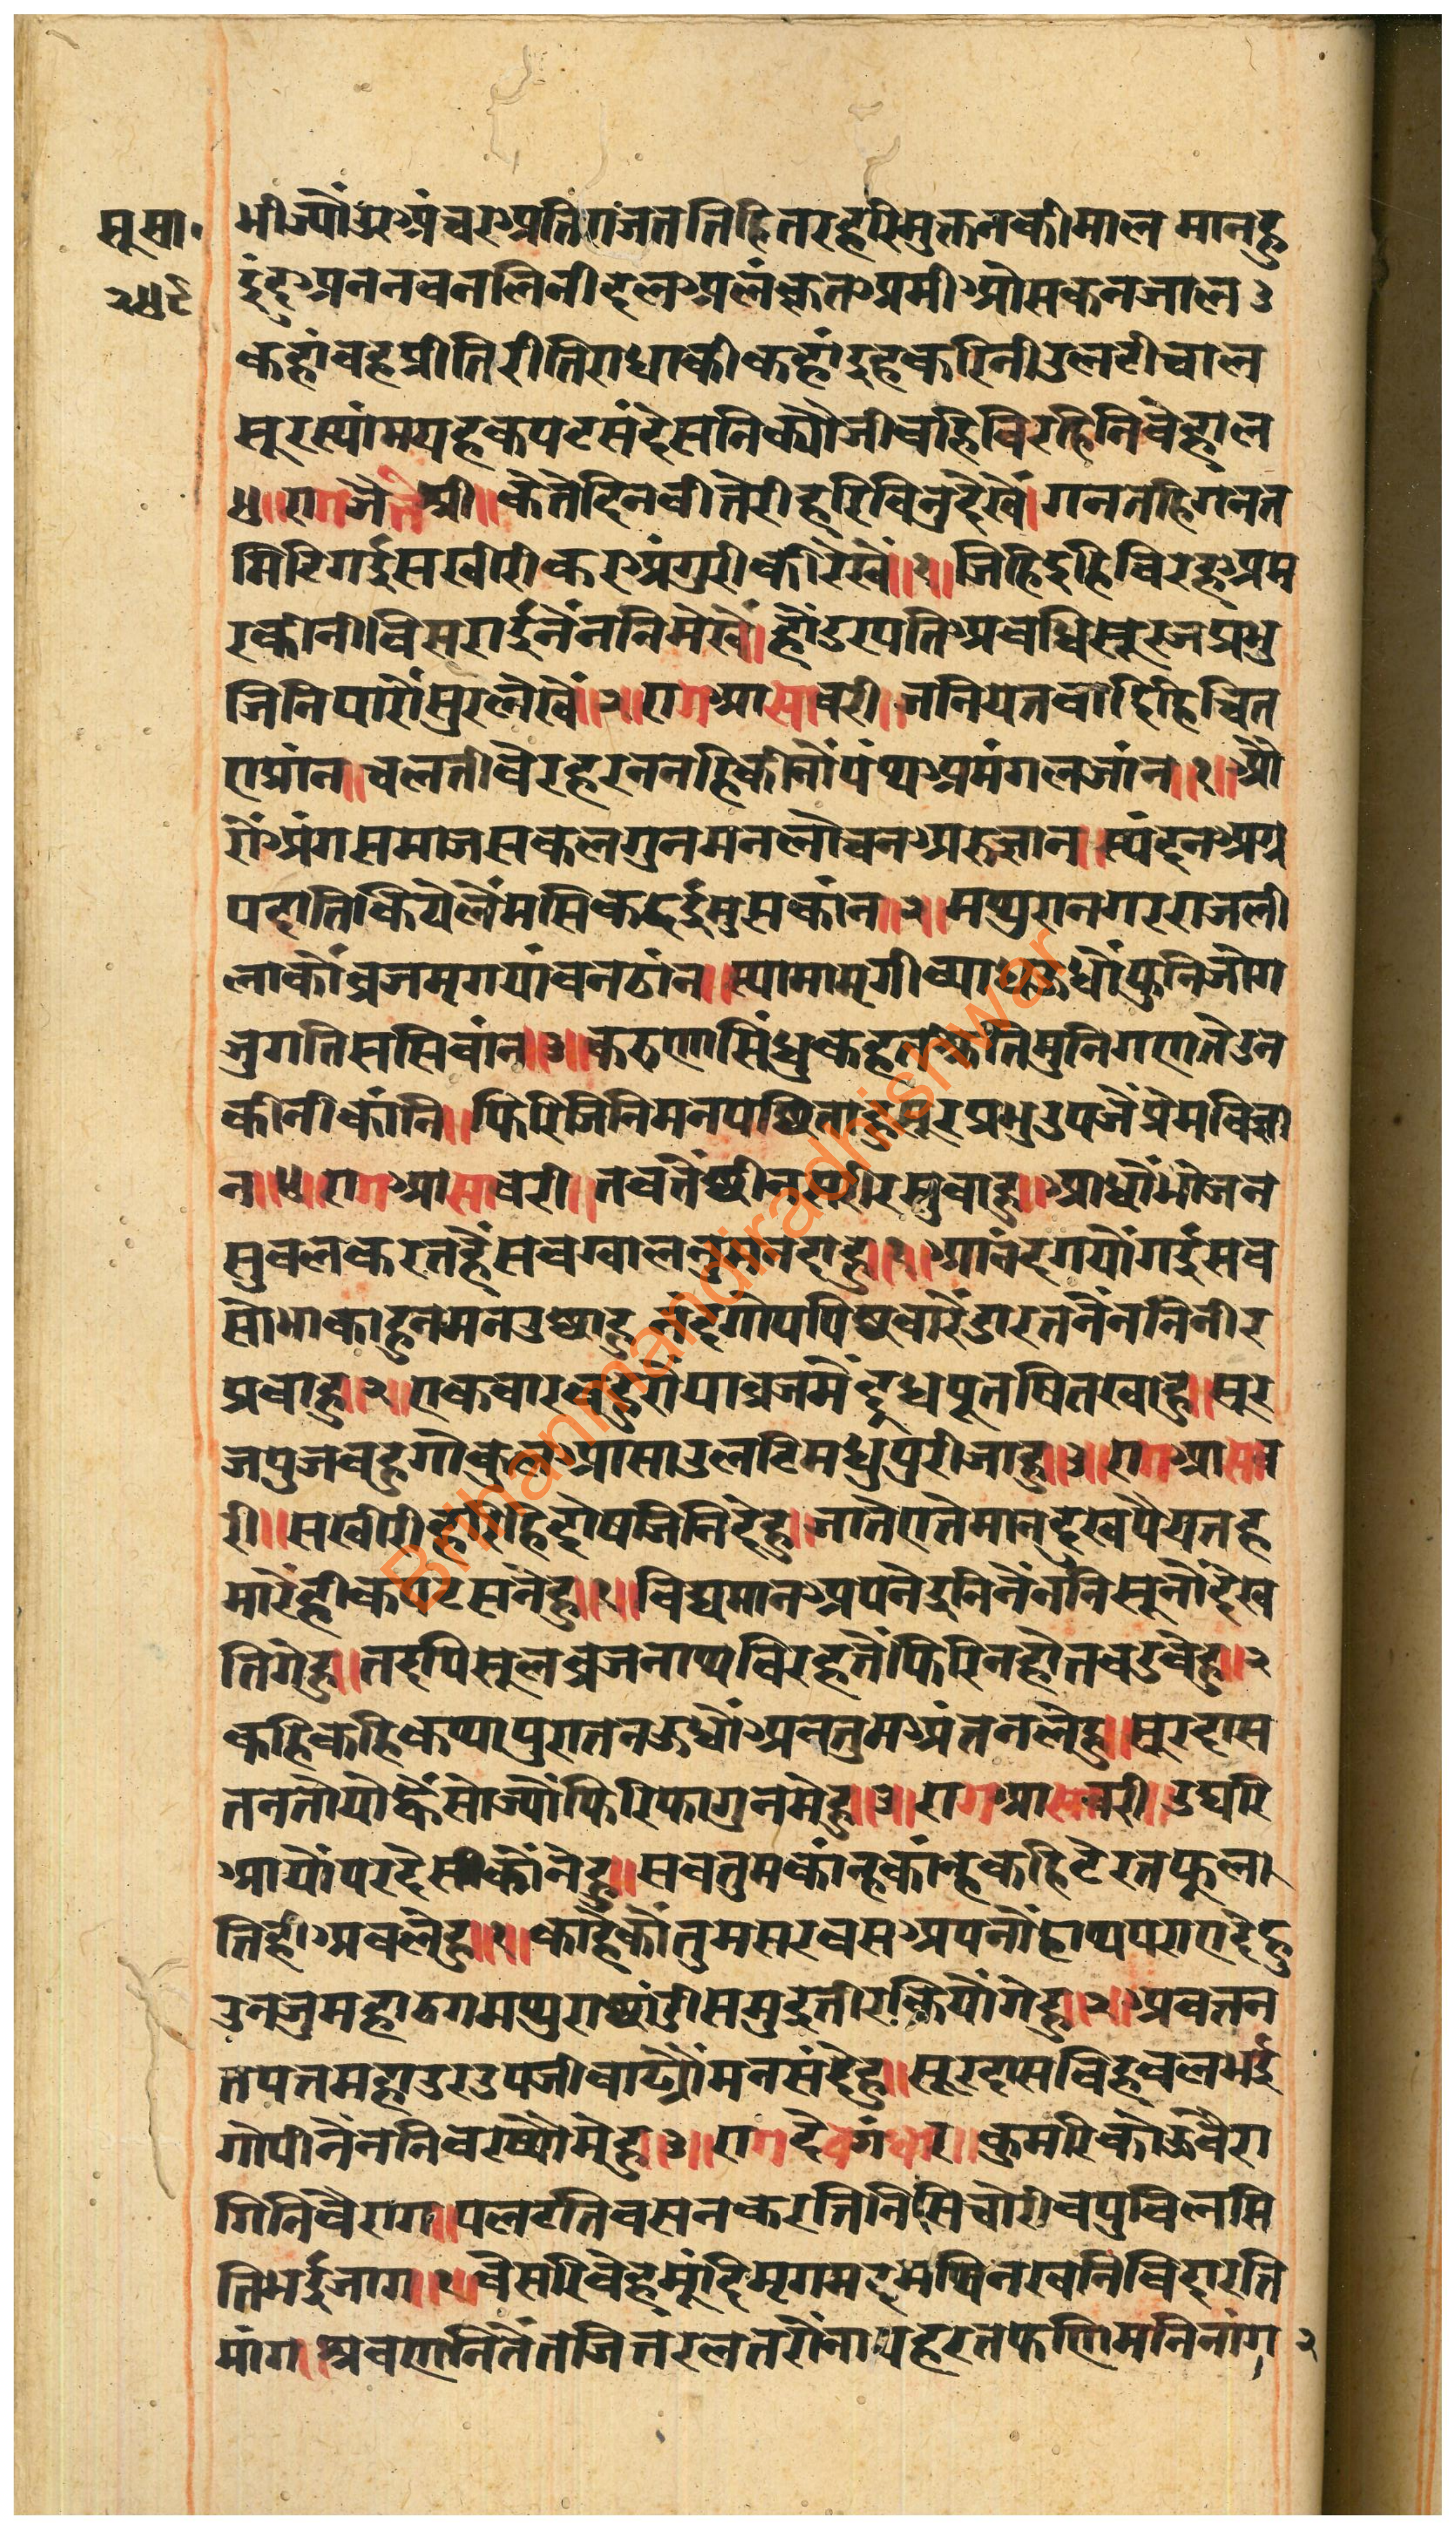 सू सा॰
२५९
भीज्यौं उर अंचर अति राजत तिहि तर हरि मुक्तन की माल मानहु
इंदु अनन नवनलिनी दल अलंकृत अमी ओसकन जाल ३
कहां वह प्रीति रीति राधा की कहां इह करिनी उलटी चाल
सूरस्यांम यह कपट संदेसनि क्यौ जीवहि विरहिनि वेहाल
४॥ राग जैतश्री॥ केते दिन वीते री हरि विनु देखें। गनतहि गनत
मिटि गई सखी री कर अंगुरी की रेखें॥१॥ जिहि दुहि विरह अम
र कीनी विसराई नैंन निमेखें। हौं डरपति अवधि सूरज प्रभु
जिनि पारौं सुर लेखें॥२॥ राग आसावरी॥ जनियत वाहि हि चित
रा प्रांन॥ चलत ही वेर हरन नहि कीनौं पंथ अमंगल जांन॥१॥ औ
रौं अंग समाज सकल गुन मन लोचन अरु ज्ञान॥ स्यंदन अग्र
पदाति कियें लैं मसि कढ्ई मुसकांन॥२॥ मथुरा नगर राज ली
ला कौं व्रज मृगयां वन ठांन॥ स्यामा मृगी व्याध ऊधौ पुनि जोग
जुगति ससिवांन॥३॥ करुणासिंधु कहत श्रुति मुनि गण ते उन
की नी कांनि॥ फिरि जिनि मन पछिताहु सूर प्रभु उपजैं प्रेम विज्ञा
न॥४॥ राग आसावरी॥ तव तें छीन सरीर सुवाहु॥ आधौ भोजन
सुवल करत हैं सव ग्वालनु मन दाहु॥१॥ आनंद गयौं गई सव
सोभा काहु न मन उछाहु नंद गोप पिछवारें डारत नैंननि नीर
प्रवाहु॥२॥ एक वार वहुरौं या व्रज मैं दूध पूत षित खाहु॥ सूर
ज पुजवहु गोकुल आसा उलटि मधुपुरी जाहु॥३॥ राग आसाव
री॥ सखी री हरिहि दोष जिनि देहु॥ जातें एते मान दुख पैयत ह
मारें ही कपट सनेहु॥१॥ विद्यमान अपनें दुनि नैंननि सूनौं देख
ति गेहु॥ तदपि सूल व्रजनाथ विरह तें फिरि न होत वड वेहु॥२
कहि कहि कथा पुरातन ऊधौं अव तुम अंत न लेहु॥ सूरदास
तन तौ यौ कैं सौ ज्यौं फिरि फागुन मेहु॥३॥ राग आसावरी॥ उघरि
आयौं परदेसी कौ नेहु॥ सव तुम कांन्ह कांन्ह कहि टेरत फूल
ति ही अव लेहु॥१॥ काहें कौं तुम सरवस अपनौं हाथ पराए देहु
उन जु महा ठग मथुरा छांडी समुद्र तीर कियौं गेहु॥२॥ अव तन
तपत महा उर उपजी वाढ्यौं मन संदेहु॥ सूरदास विह्वल भई
गोपी नैंननि वरष्यौ मेहु॥३॥ राग देवगंधार॥ कुमरि को ऊ वैरा
गिनि वैराग॥ पलटति वसन करति निसि चोरी वपु विलसि
ति भई जाग॥१॥ वेसरि वेह मूंदि मृगमद मथि नखनि विदारति
मांग॥ श्रवणनि तैं तजि तरल तरौंना पहरत फणि मनि नांग २